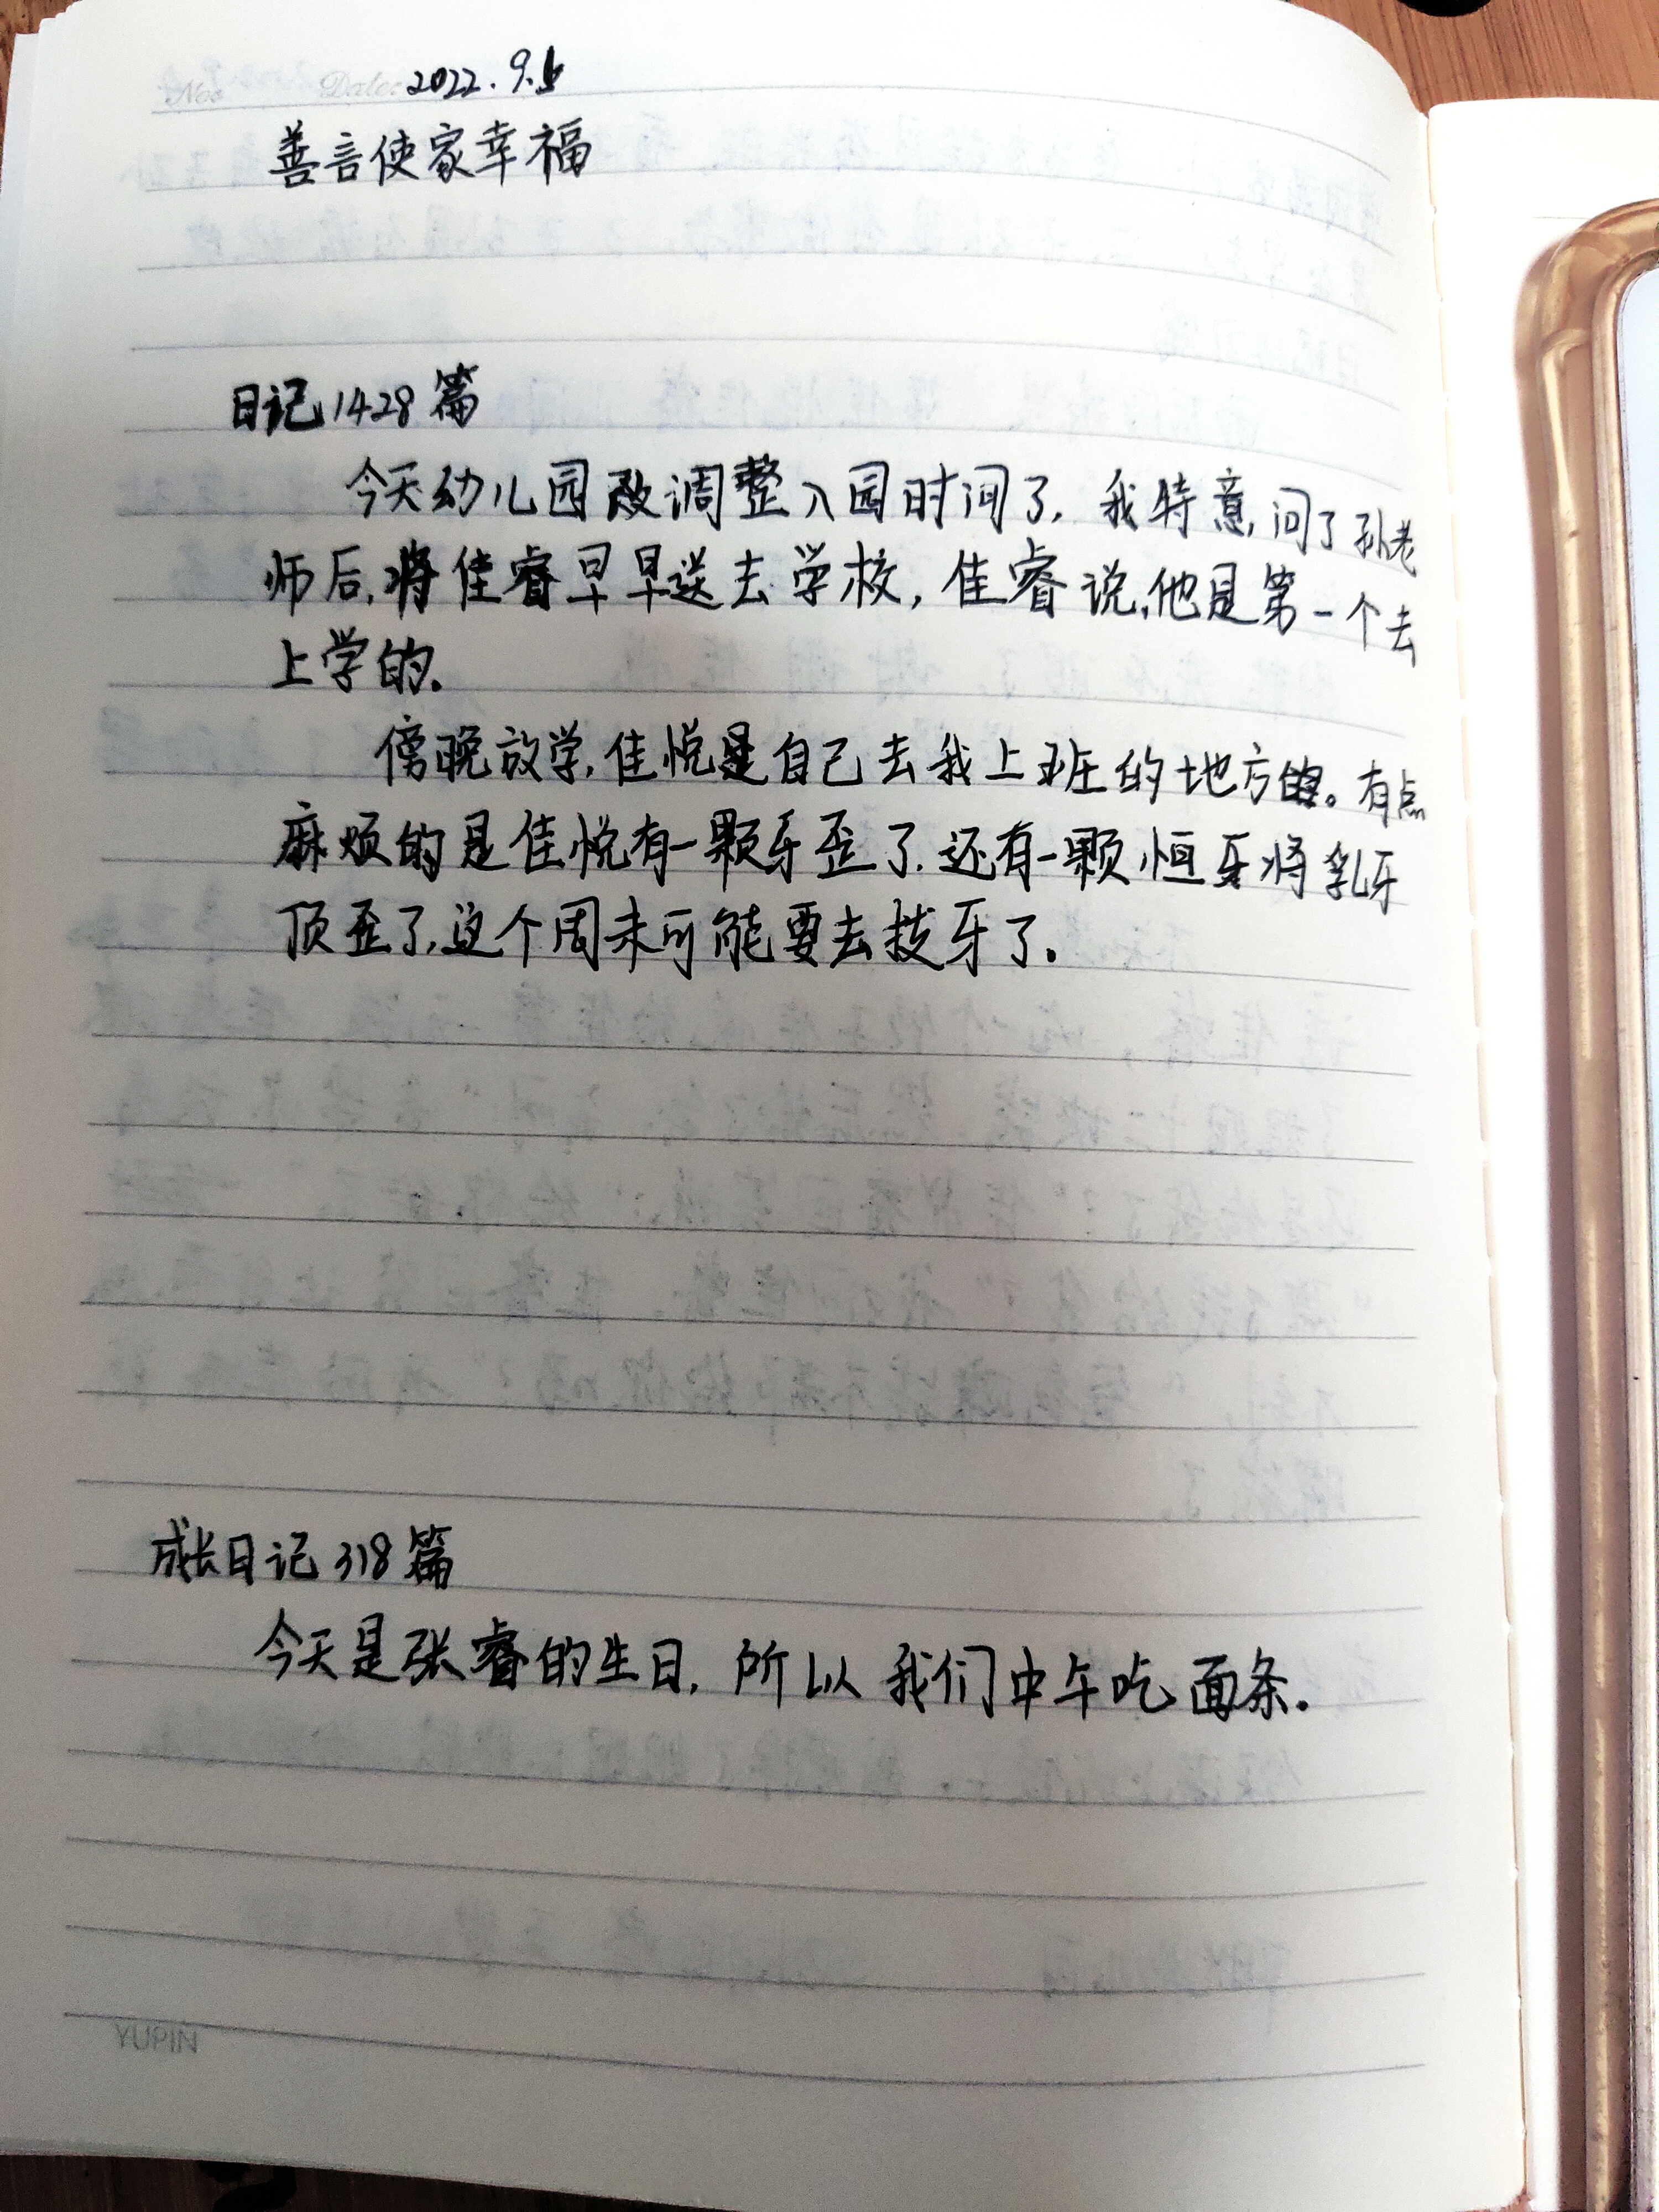 No: Date: 2022.9.6
善言使家幸福
日记1428篇
今天幼儿园改调整入园时间了,我特意,问了孙老
师后,将佳睿早早送去学校,佳睿说,他是第一个去
上学的.
傍晚放学,佳悦是自己去我上班的地方的。有点
麻烦的是佳悦有一颗牙歪了.还有一颗恒牙将乳牙
顶歪了,这个周末可能要去拔牙了.
成长日记318篇
今天是张睿的生日,所以我们中午吃面条.
YUPIN